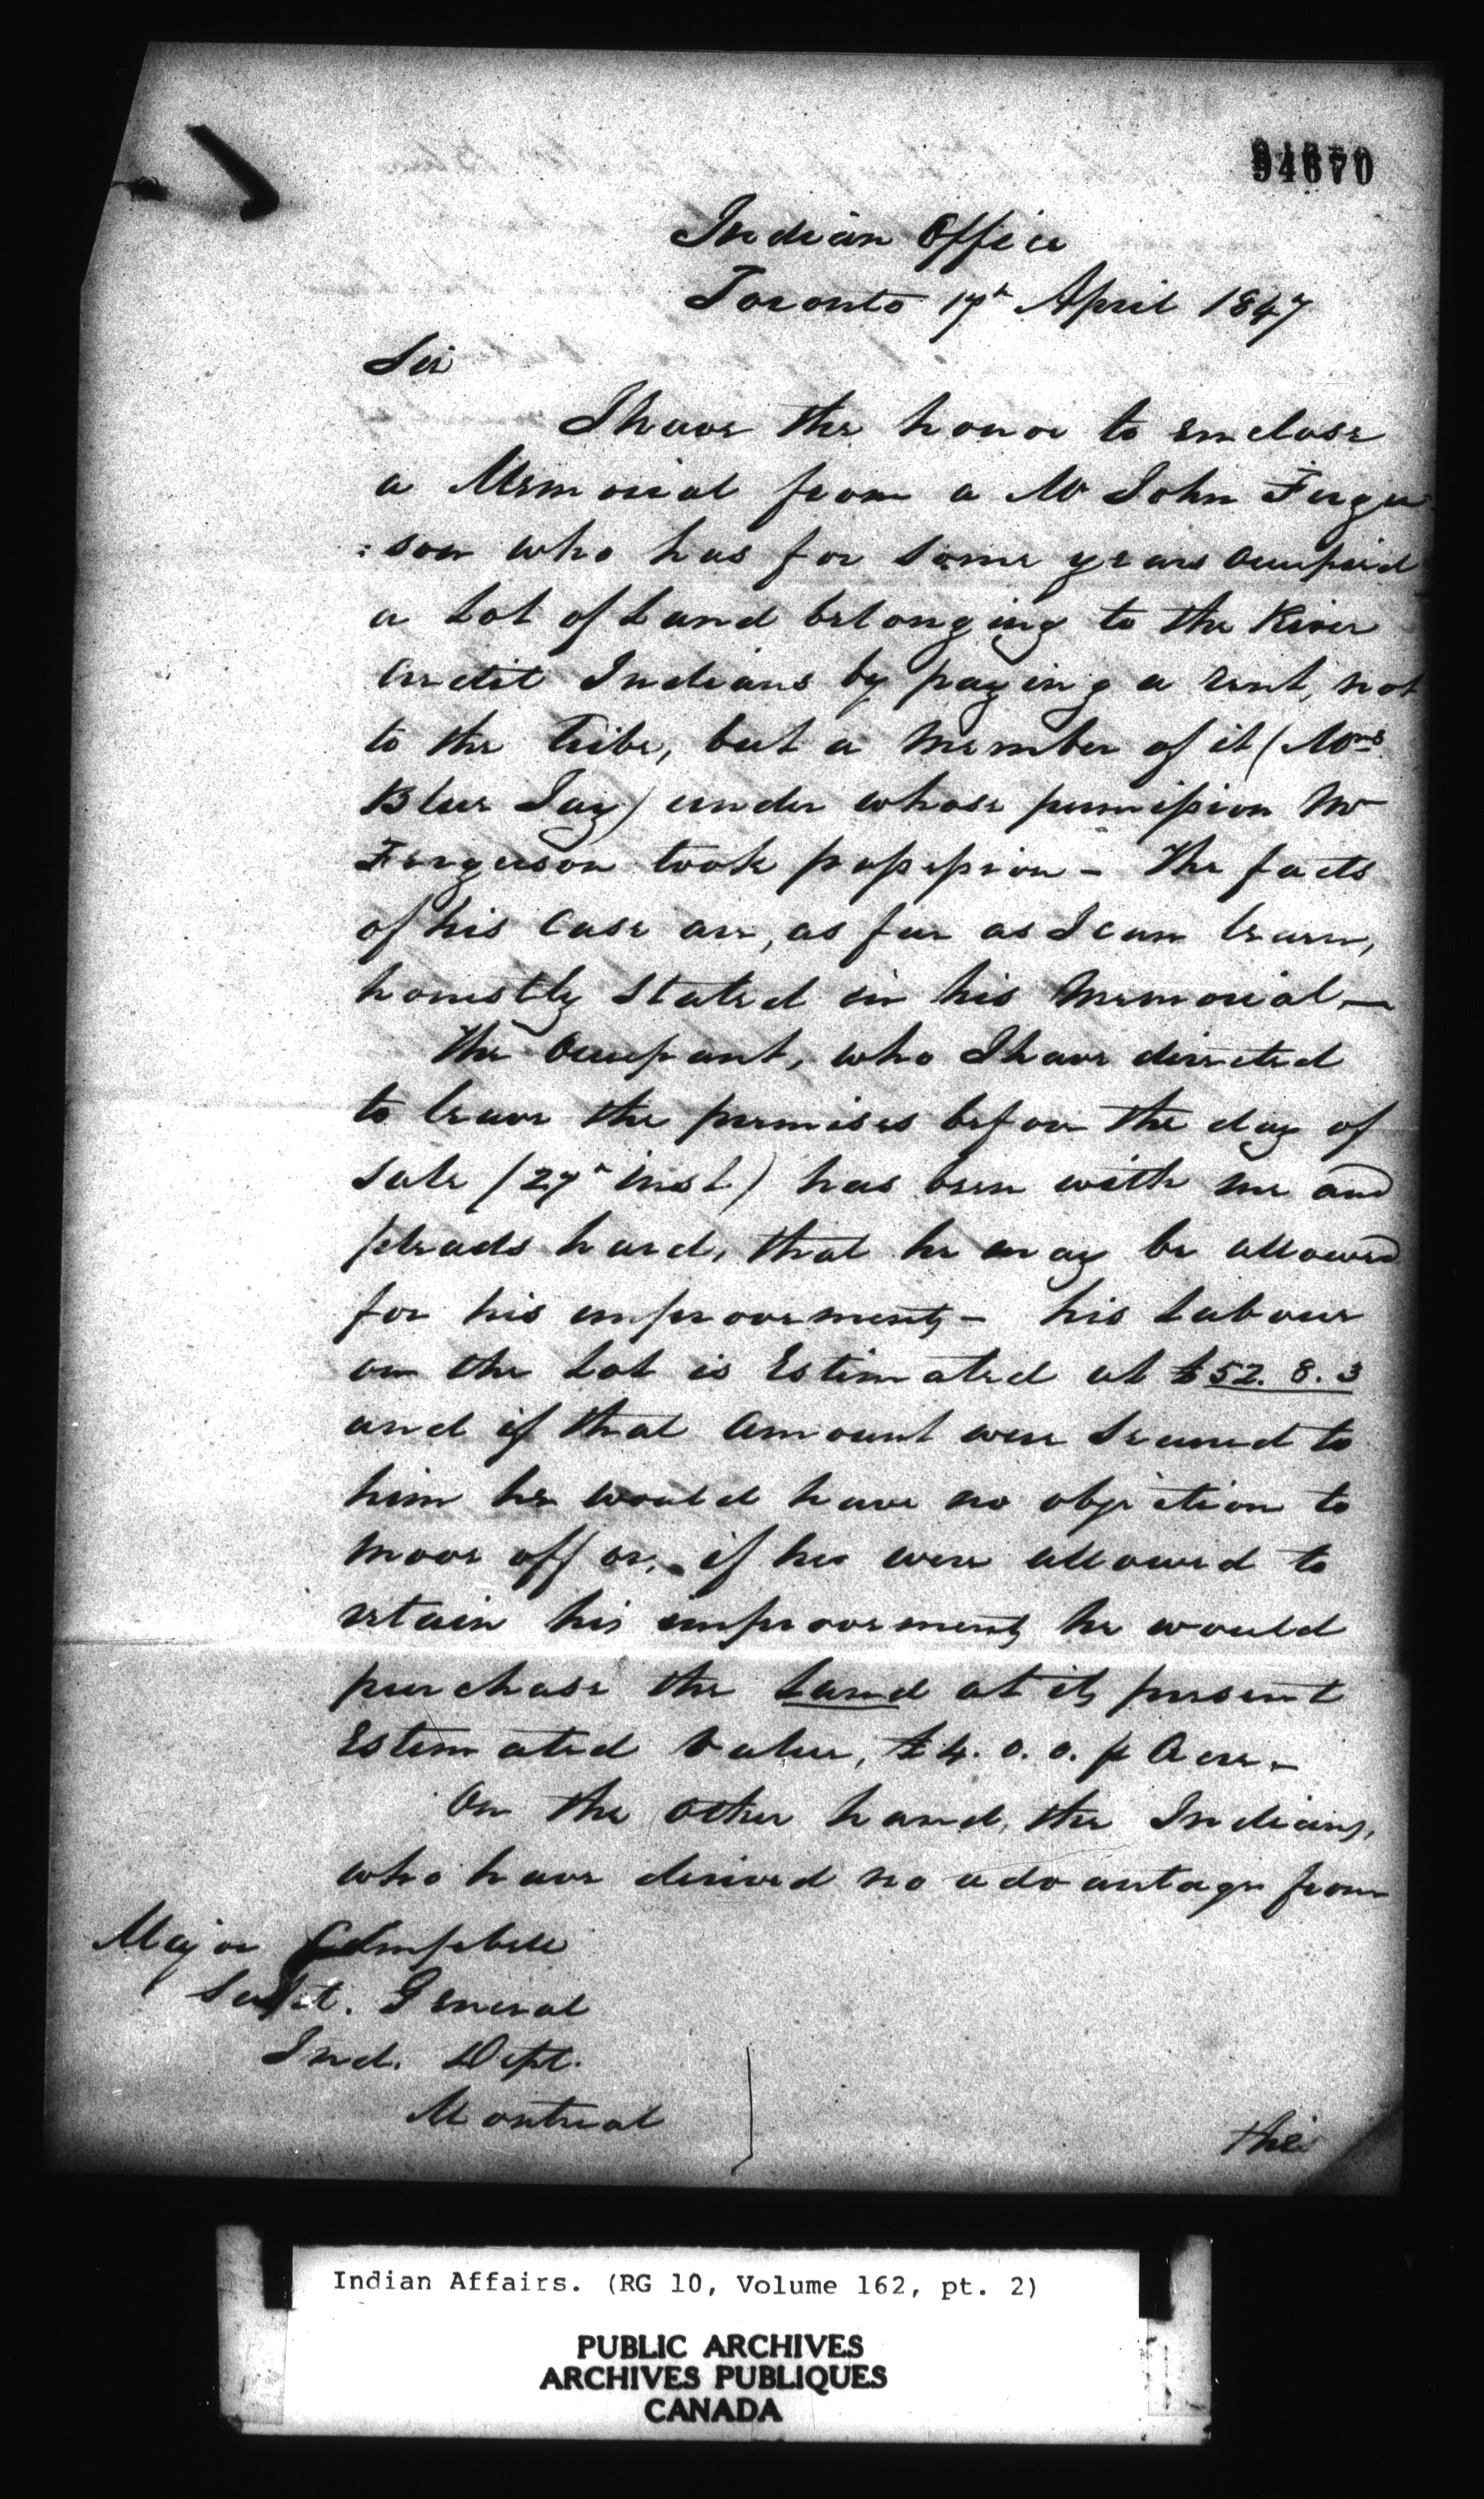 94670
Indian Office
Toronto 17th April 1847
Sir
I have the honor to enclose
a Memorial from a Mr John Fergu
:son who has for some years occupied
a Lot of Land belonging to the River
Credit Indians by paying a rent, not
to the Tribe, but a Member of it (Mrs
Blue Jay) under whose permission Mr
Ferguson took possession - The facts
of his Case are, as far as I can learn,
honestly Stated in his Memorial, —
The Occupant, who I have directed
to leave the premises before the day of
Sale (27th inst) has been with me and
pleads hard, that he may be allowed
for his improvements - his Labour
on the Lot is Estimated at £52. 8. 3
and if that Amount were Secured to
him he would have no objection to
move off or, if he were allowed to
retain his improvements he would
purchase the Land at its present
Estimated Value, £4. 0. 0. p Acre. -
On the other hand, the Indians,
who have derived no advantage from
Major Campbell
Supt. General
Ind. Dept.
Montreal
this
Indian Affairs. (RG 10, Volume 162, pt. 2)
PUBLIC ARCHIVES
ARCHIVES PUBLIQUES
CANADA